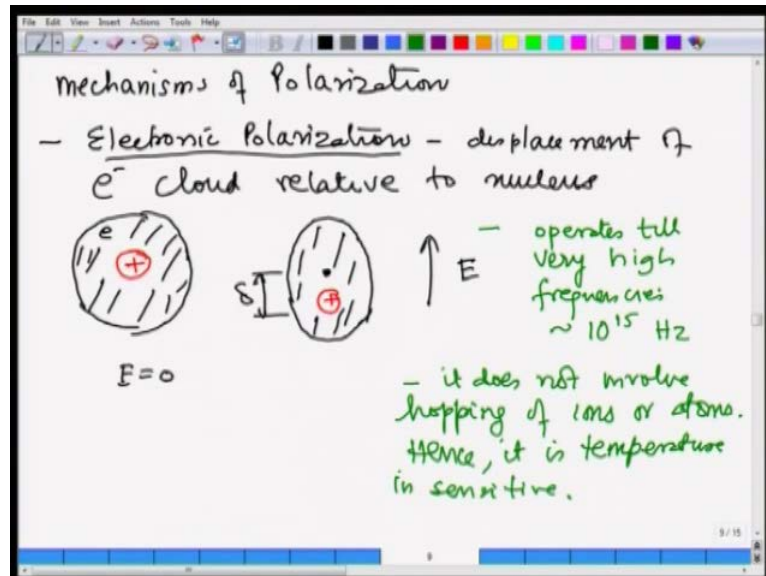 File Edit View Insert Actions Tools Help
Mechanisms of Polarization
- Electronic Polarization - displacement of
e⁻ cloud relative to nucleus
e
+
E=0
δ
+
E
- operates till
very high
frequencies
~ 10¹⁵ Hz
- it does not involve
hopping of ions or atoms.
Hence, it is temperature
in sensitive.
9/15
9